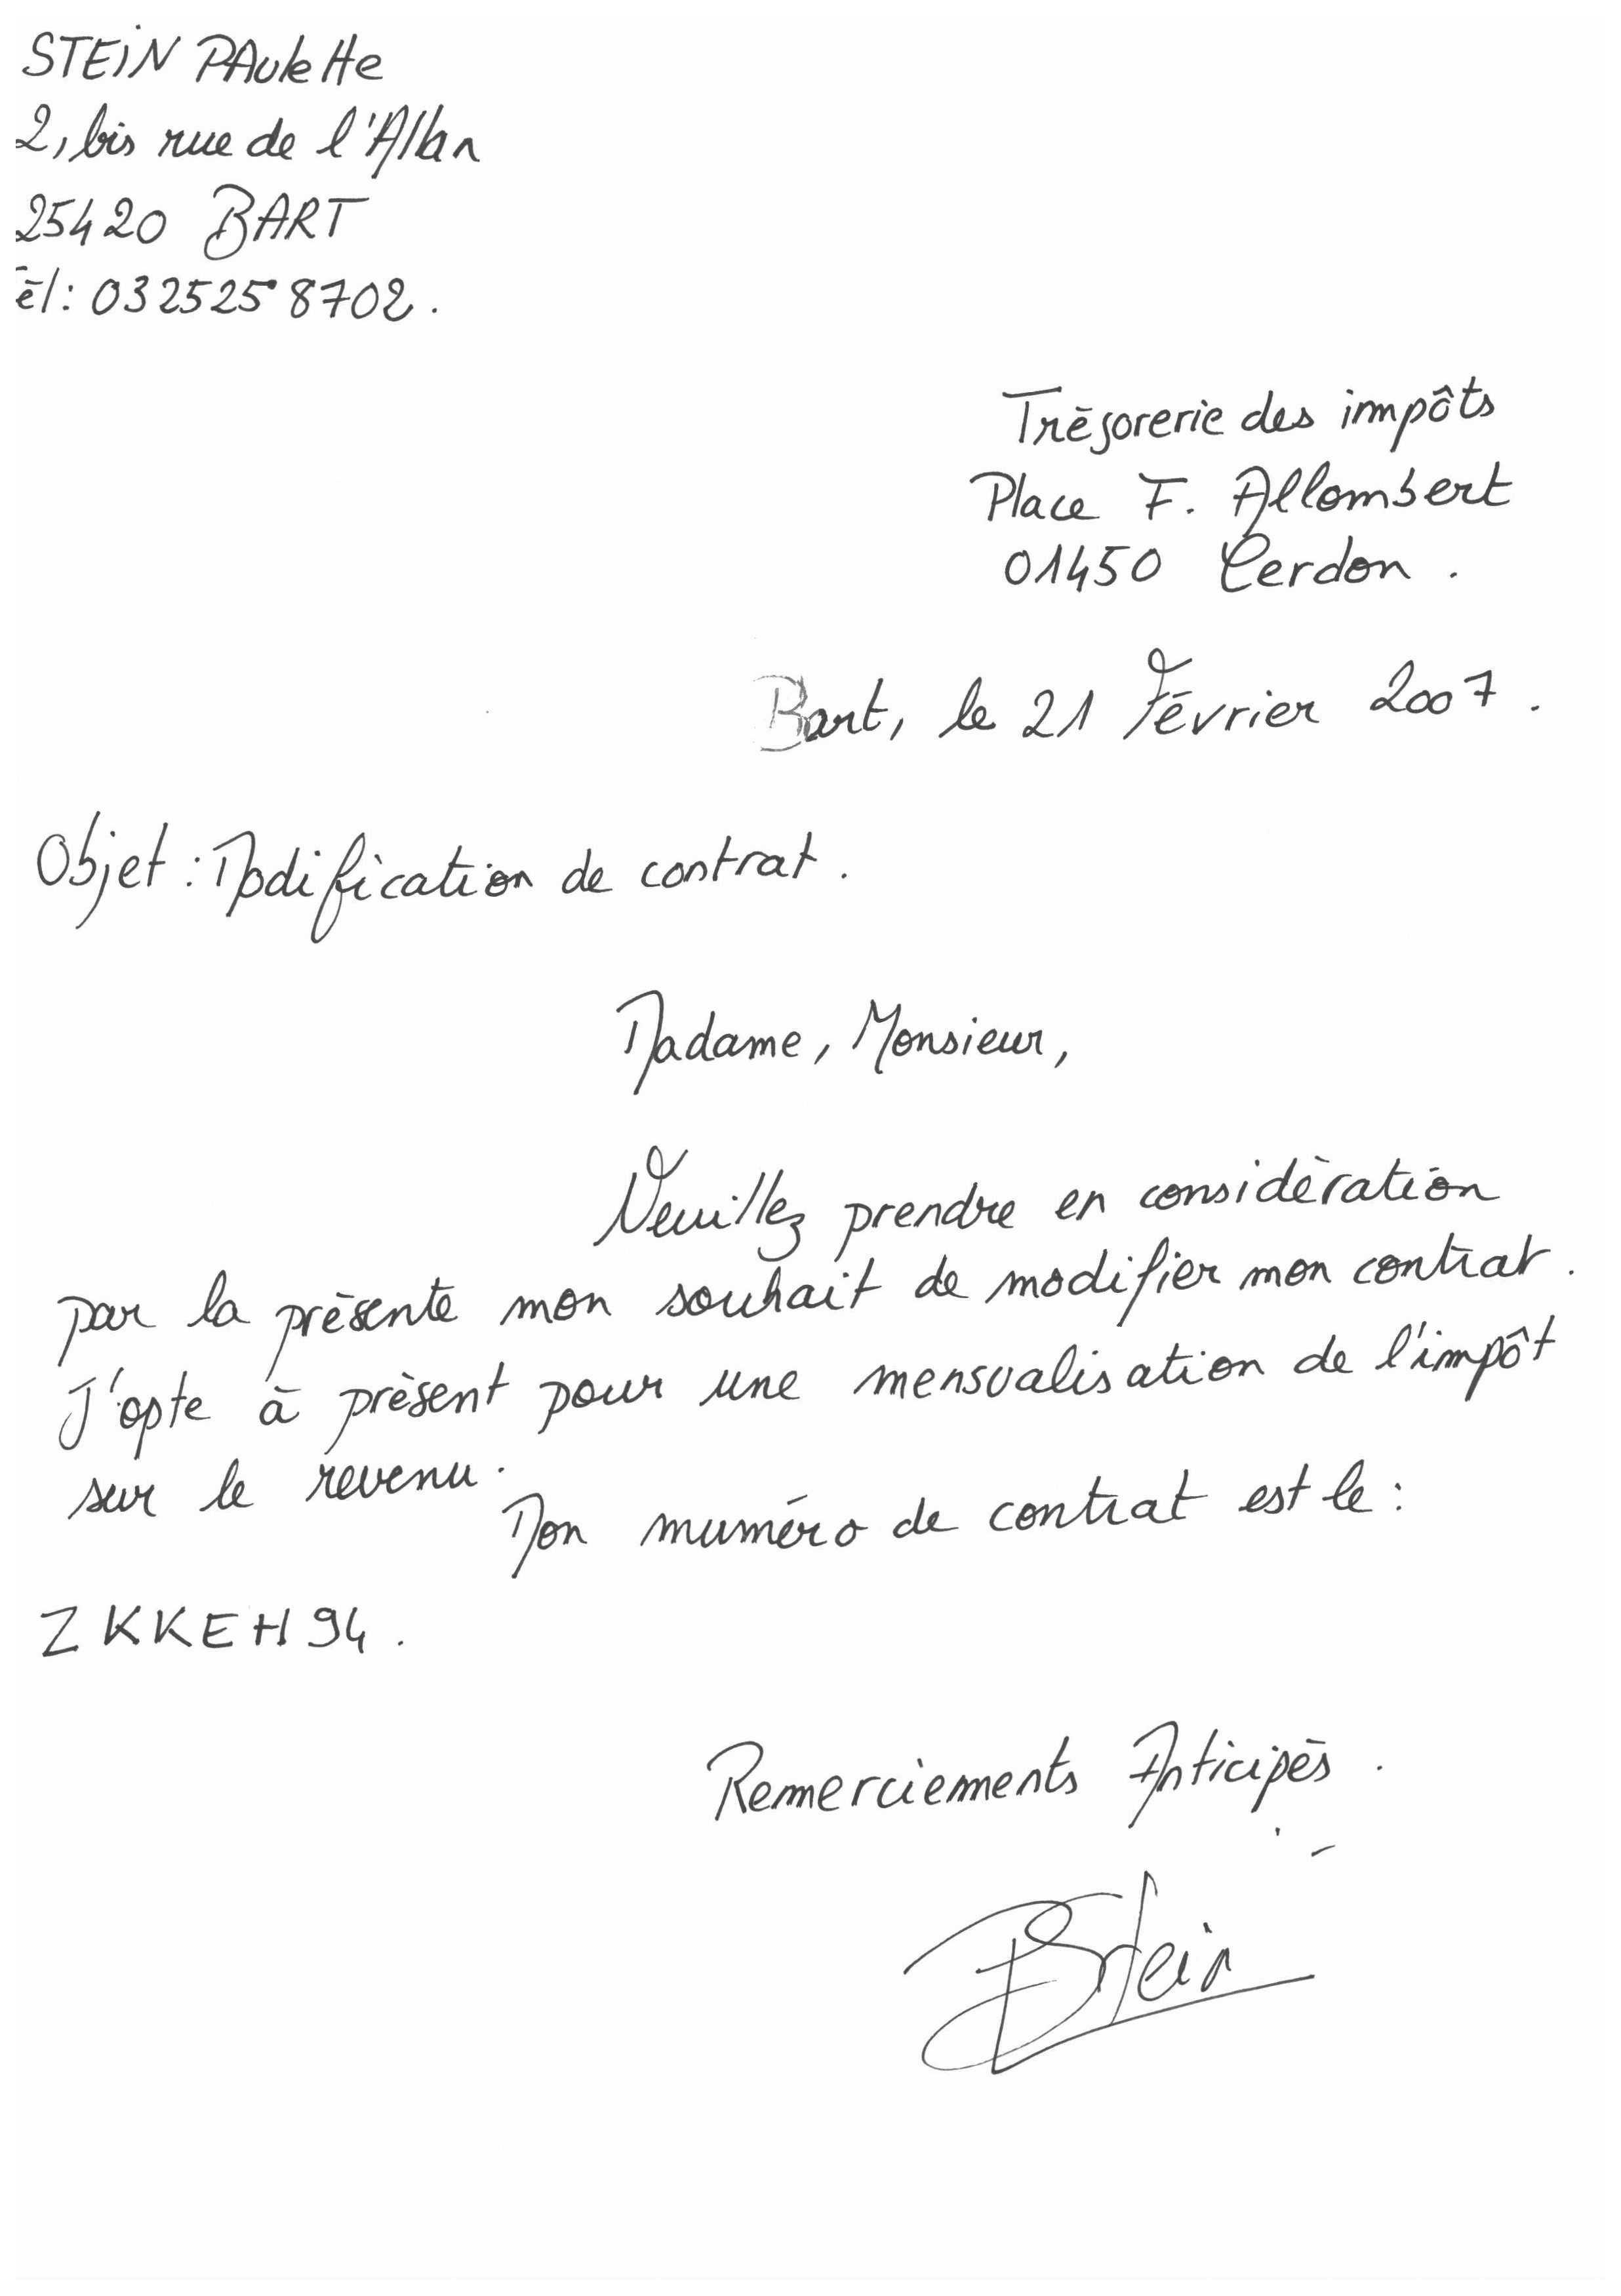 STEIN PAulette
2, bis rue de l'Allan
25420 BART
él: 0325258702.
Trésorerie des impôts
Place F. Allombert
01450 Cerdon.
Bart, le 21 Février 2007.
Objet : Modification de contrat.
Madame, Monsieur,
Veuillez prendre en considération
par la présente mon souhait de modifier mon contrat.
J'opte à présent pour une mensualisation de l'impôt
sur le revenu.
Mon numéro de contrat est le :
ZKKEH94.
Remerciements Anticipés.
PStein